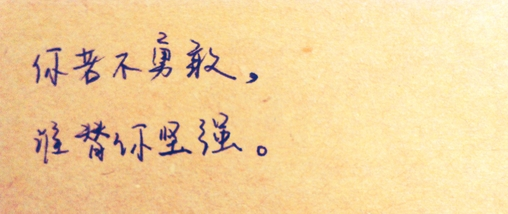 你若不勇敢，
谁替你坚强。